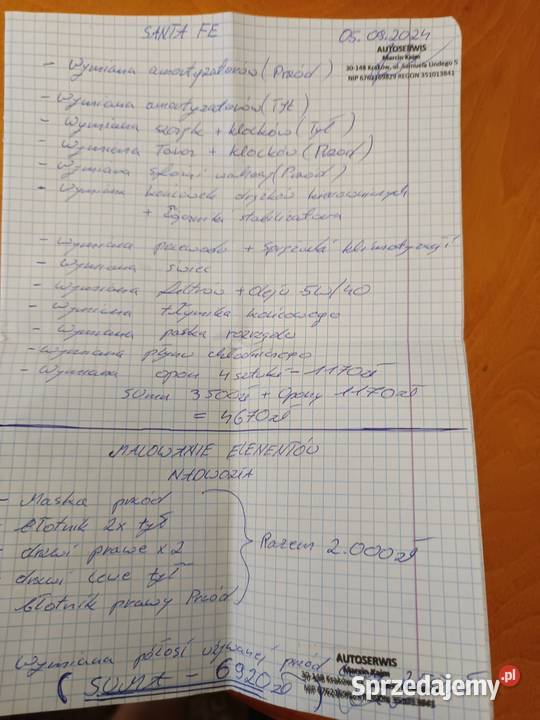 SANTA FE 05.09.2024
AUTOSERWIS
Marcin Kajm
30-148 Kraków, ul. Samuela Lindego 5
NIP REGON 351013841
- Wymiana amortyzatorów (Przód)
- Wymiana amortyzatorów (Tył)
- Wymiana szczęk + klocków (Tył)
- Wymiana Tarcz + klocków (Przód)
- Wymiana (Przód)
- Wymiana końcówek drążków kierowniczych
+ łącznika stabilizatora
- Wymiana przewodu + Sprężarki klimatyzacji
- Wymiana świec
- Wymiana filtrów + oleju 5W/40
- Wymiana tłumika końcowego
- Wymiana paska rozrządu
- Wymiana płynu chłodniczego
- Wymiana opon 4 sztuki - 1170zł
Suma 3500zł + Opony 1170zł
= 4670zł
MALOWANIE ELEMENTÓW
NADWOZIA
- Maska przód
- błotnik 2x tył
- drzwi prawe x2
- drzwi lewe tył
błotnik prawy Przód
Razem 2.000zł
Wymiana półoś używanej przód
AUTOSERWIS
Marcin Kajm
(SUMA - 6920zł)
Sprzedajemy.pl